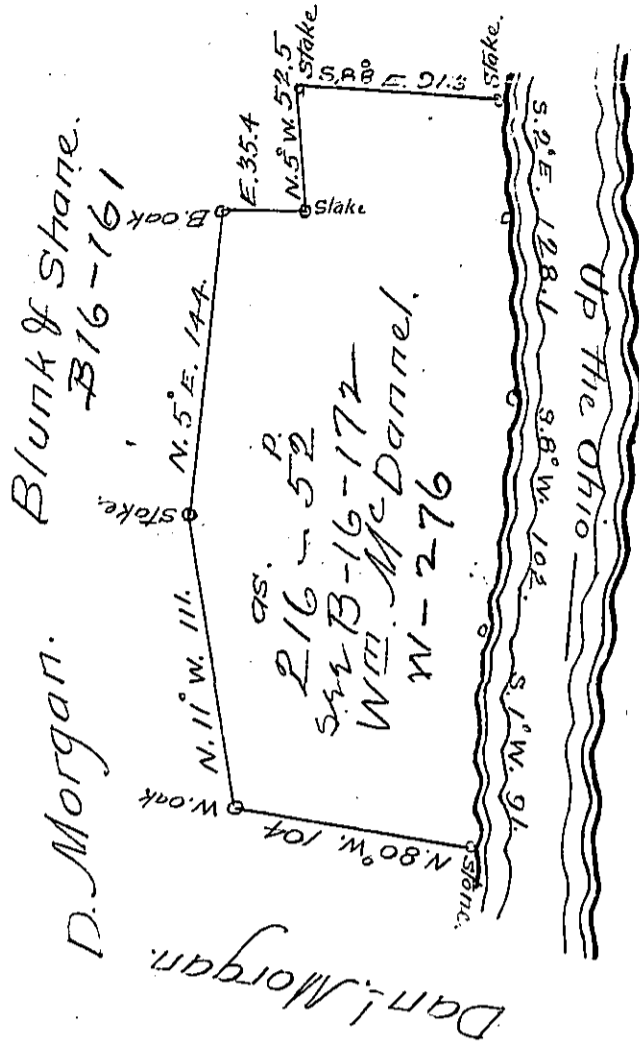 D. Morgan.
Blunk & Shane.
B16-161
Dan'l Morgan.
as. P.
216 - 52
See B-16-172
Wm. McDannel.
W-276
W. oak
N. 11° W. 111.
Stake.
N. 5° E. 144.
B. oak
E. 35.4
Stake
N. 5° W. 52.5
Stake
S. 88° E.
Stake.
S. 2° E. 128.1
S. 8° W. 102.
S. 1° W. 91.
Stone.
N. 80° W. 104
Up the Ohio